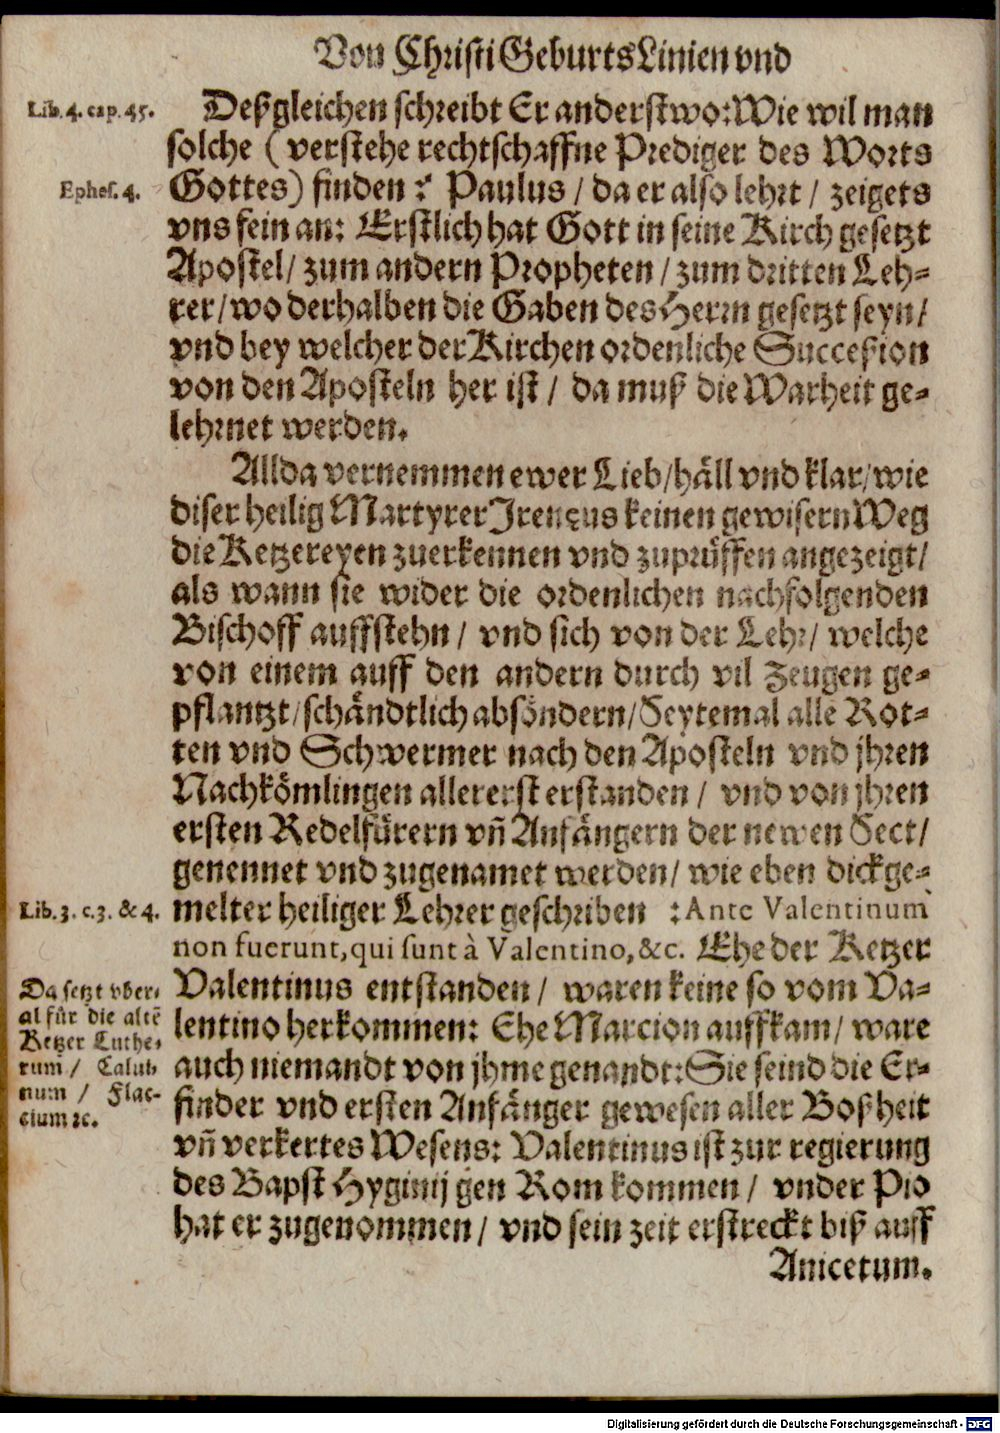 Von Christi Geburts Linien vnd
Lib. 4. cap. 45.
Deßgleichen schreibt Er anderstwo: Wie wil man
solche ( verstehe rechtschaffne Prediger des Worts
Ephes. 4.
Gottes) finden ? Paulus / da er also lehrt / zeigets
vns fein an: Erstlich hat Gott in seine Kirch gesetzt
Apostel/ zum andern Propheten / zum dritten Leh-
rer/ wo derhalben die Gaben des Herrn gesetzt seyn/
vnd bey welcher der Kirchen ordenliche Succeßion
von den Aposteln her ist / da muß die Warheit ge-
lehrnet werden.
Allda vernemmen ewer Lieb/ häll vnd klar/ wie
diser heilig Martyrer Irenęus keinen gewisern Weg
die Ketzereyen zuerkennen vnd zuprüffen angezeigt/
als wann sie wider die ordenlichen nachfolgenden
Bischoff auffstehn / vnd sich von der Lehr/ welche
von einem auff den andern durch vil Zeugen ge-
pflantzt/ schändtlich absöndern/ Seytemal alle Rot-
ten vnd Schwermer nach den Aposteln vnd jhren
Nachkömlingen allererst erstanden / vnd von jhren
ersten Redelfürern vñ Anfängern der newen Sect/
genennet vnd zugenamet werden/ wie eben dickge-
Lib. 3. c. 3. & 4.
melter heiliger Lehrer geschriben : Ante Valentinum
non fuerunt, qui sunt à Valentino, &c. Ehe der Ketzer
Da setzt vber-
al für die altē
Ketzer Luthe-
rum / Calui-
num / Flac-
cium ꝛc.
Valentinus entstanden / waren keine so vom Va-
lentino herkommen: Ehe Marcion auffkam/ ware
auch niemandt von jhme genandt: Sie seind die Er-
finder vnd ersten Anfänger gewesen aller Boßheit
vñ verkertes Wesens: Valentinus ist zur regierung
des Bapst Hyginij gen Rom kommen / vnder Pio
hat er zugenommen / vnd sein zeit erstreckt biß auff
Anicetum.
Digitalisierung gefördert durch die Deutsche Forschungsgemeinschaft - DFG